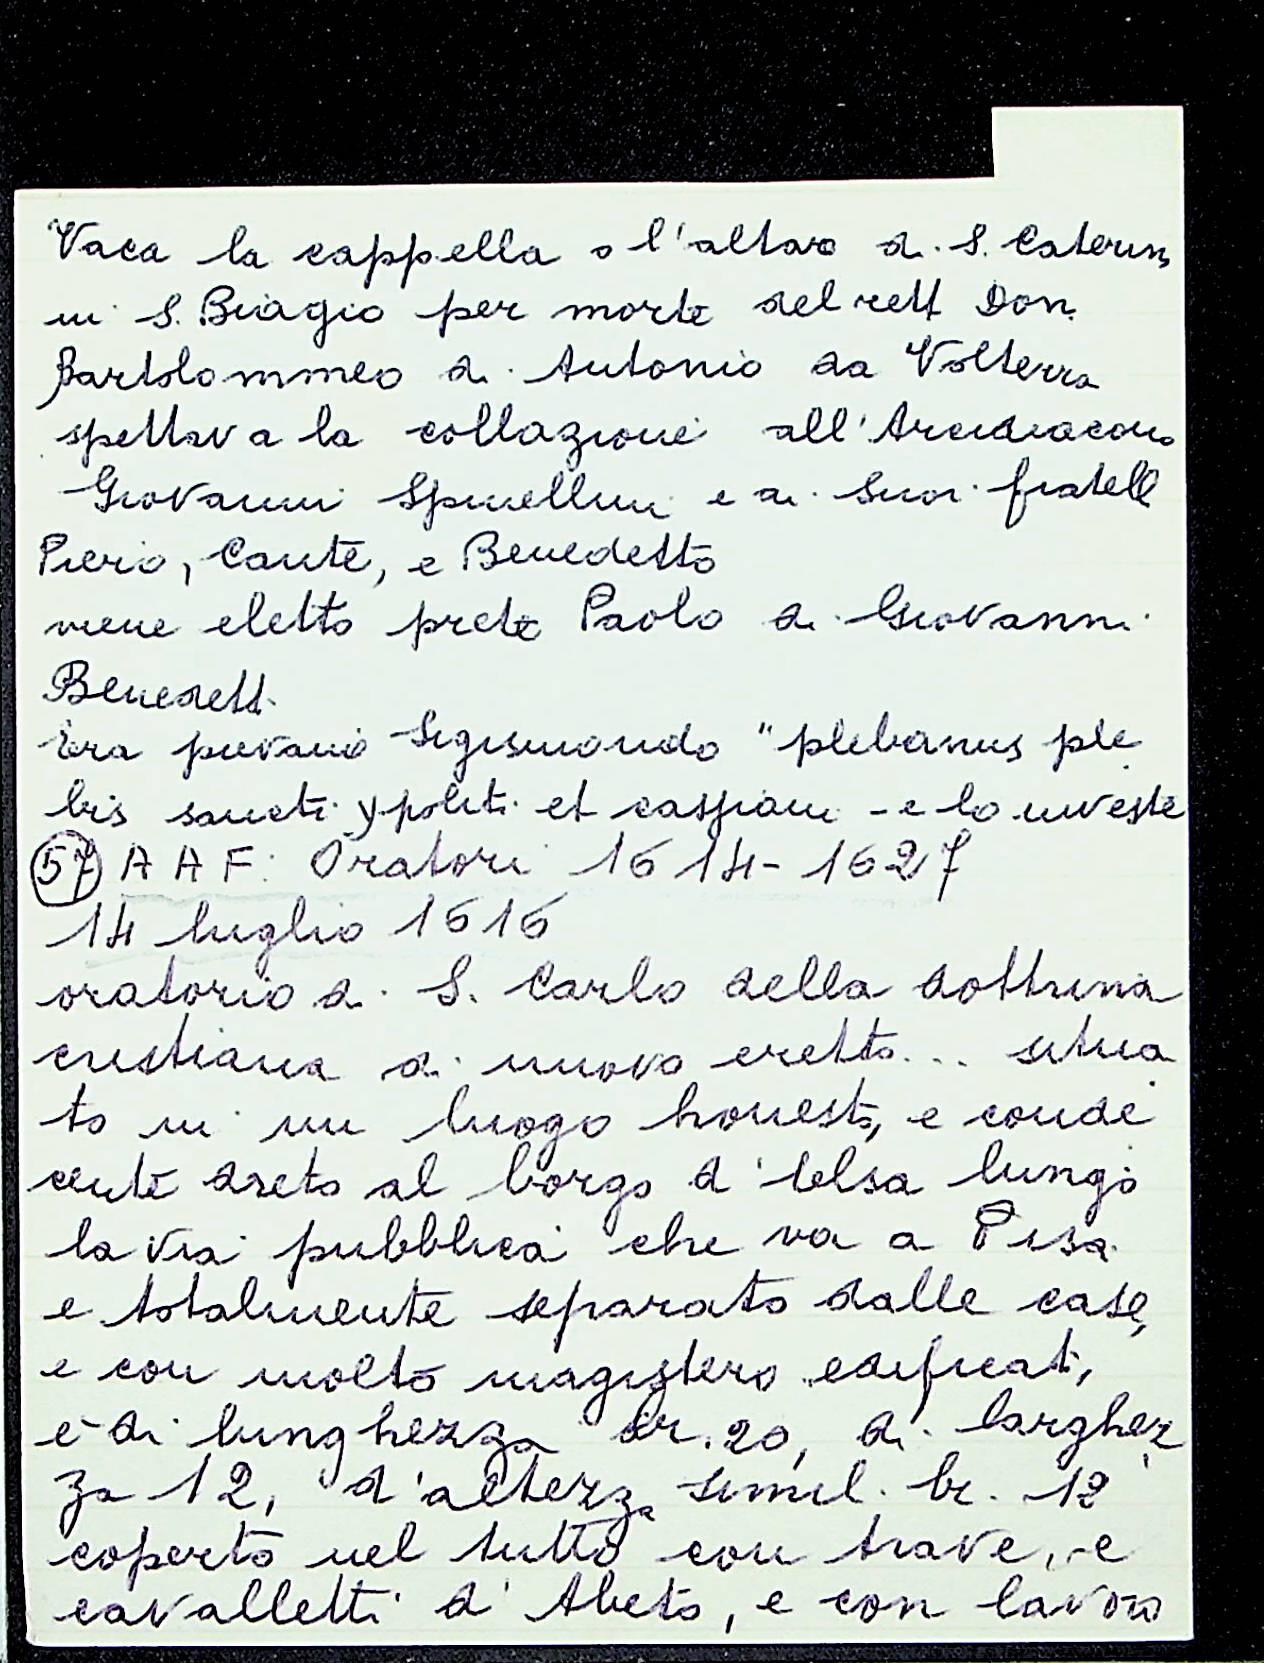 Vaca la cappella o l'altare di S. Caterina
in S. Biagio per morte del rett Don.
Bartolommeo di Antonio da Volterra
spettava la collazione all'Arcidiacono
Giovanni Spinellini e ai suoi fratelli
Piero, Cante, e Benedetto
viene eletto prete Paolo di Giovanni
Benedetti
Era pievano Sigismondo "plebanus ple
bis sancti ypoliti et cassiani - e lo investe
57 A A F: Oratori 1614-1627
14 luglio 1616
oratorio di S. Carlo della dottrina
cristiana di nuovo eretto... situa
to in un luogo honesto, e conde
cente dreto al borgo d'Elsa lungo
la via pubblica che va a Pisa
e totalmente separato dalle case,
e con molto magistero edificati,
è di lunghezza br. 20, di larghez
za 12, d'altezza simil. br. 12
coperto nel tutto con trave, e
cavalletti d'Abeto, e con lavoro